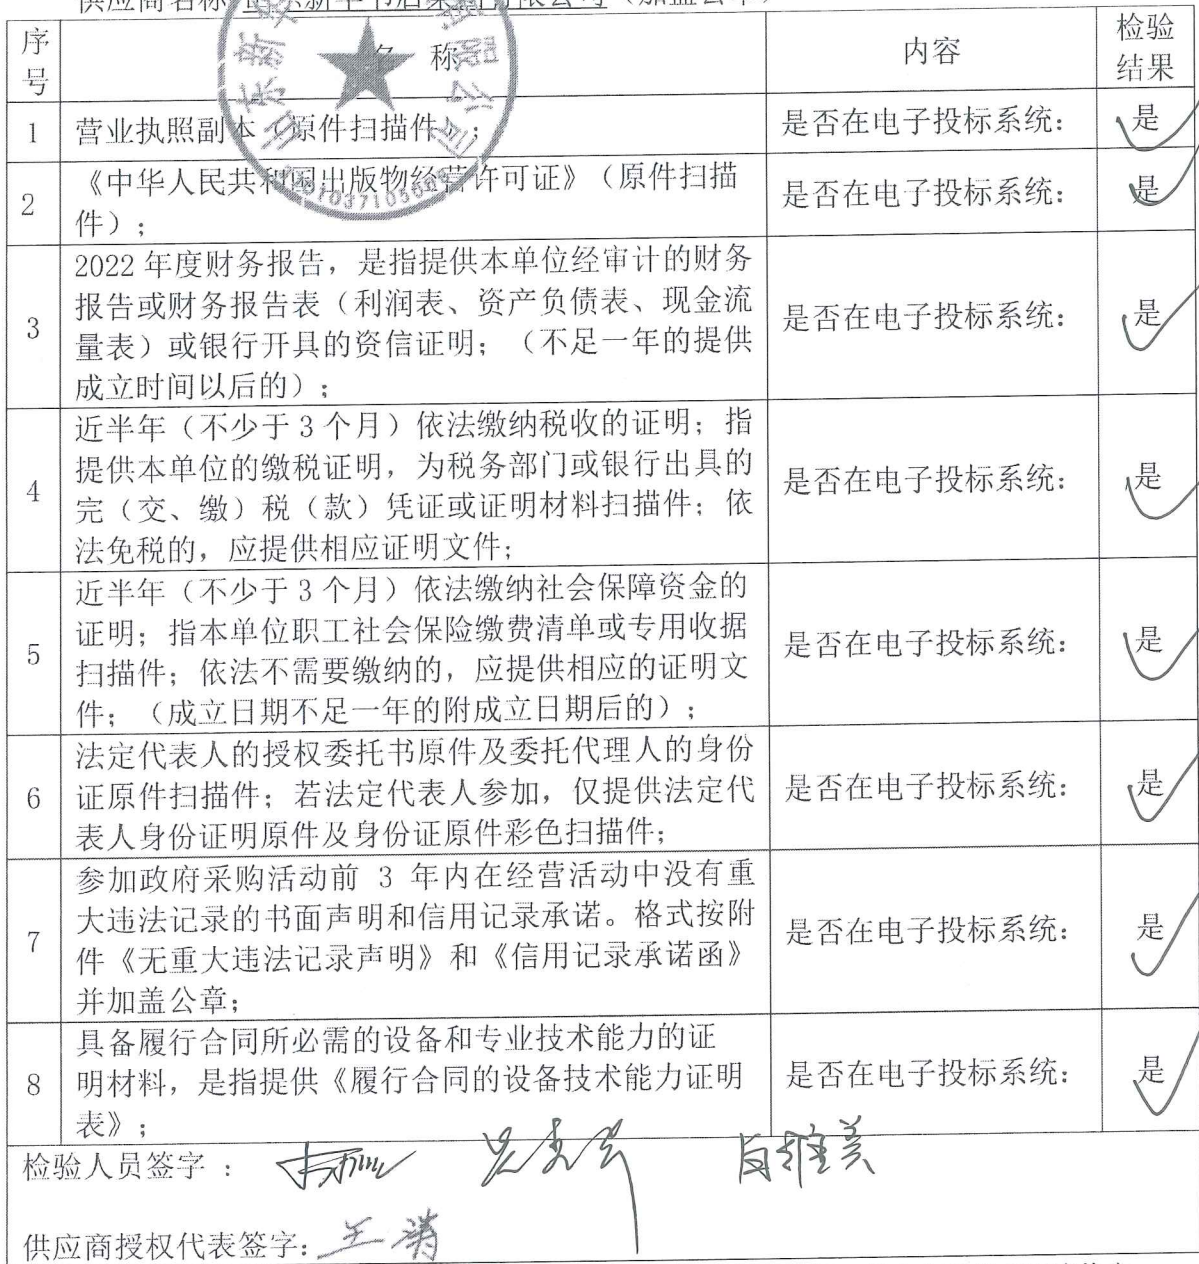 供应商名称
序号
名 称
内容
检验
结果
1
营业执照副本（原件扫描件）；
是否在电子投标系统：
是
2
《中华人民共和国出版物经营许可证》（原件扫描
件）；
是否在电子投标系统：
是
3
2022 年度财务报告，是指提供本单位经审计的财务
报告或财务报告表（利润表、资产负债表、现金流
量表）或银行开具的资信证明；（不足一年的提供
成立时间以后的）；
是否在电子投标系统：
是
4
近半年（不少于 3 个月）依法缴纳税收的证明；指
提供本单位的缴税证明，为税务部门或银行出具的
完（交、缴）税（款）凭证或证明材料扫描件；依
法免税的，应提供相应证明文件；
是否在电子投标系统：
是
5
近半年（不少于 3 个月）依法缴纳社会保障资金的
证明；指本单位职工社会保险缴费清单或专用收据
扫描件；依法不需要缴纳的，应提供相应的证明文
件；（成立日期不足一年的附成立日期后的）；
是否在电子投标系统：
是
6
法定代表人的授权委托书原件及委托代理人的身份
证原件扫描件；若法定代表人参加，仅提供法定代
表人身份证明原件及身份证原件彩色扫描件；
是否在电子投标系统：
是
7
参加政府采购活动前 3 年内在经营活动中没有重
大违法记录的书面声明和信用记录承诺。格式按附
件《无重大违法记录声明》和《信用记录承诺函》
并加盖公章；
是否在电子投标系统：
是
8
具备履行合同所必需的设备和专业技术能力的证
明材料，是指提供《履行合同的设备技术能力证明
表》；
是否在电子投标系统：
是
检验人员签字 ：
供应商授权代表签字：